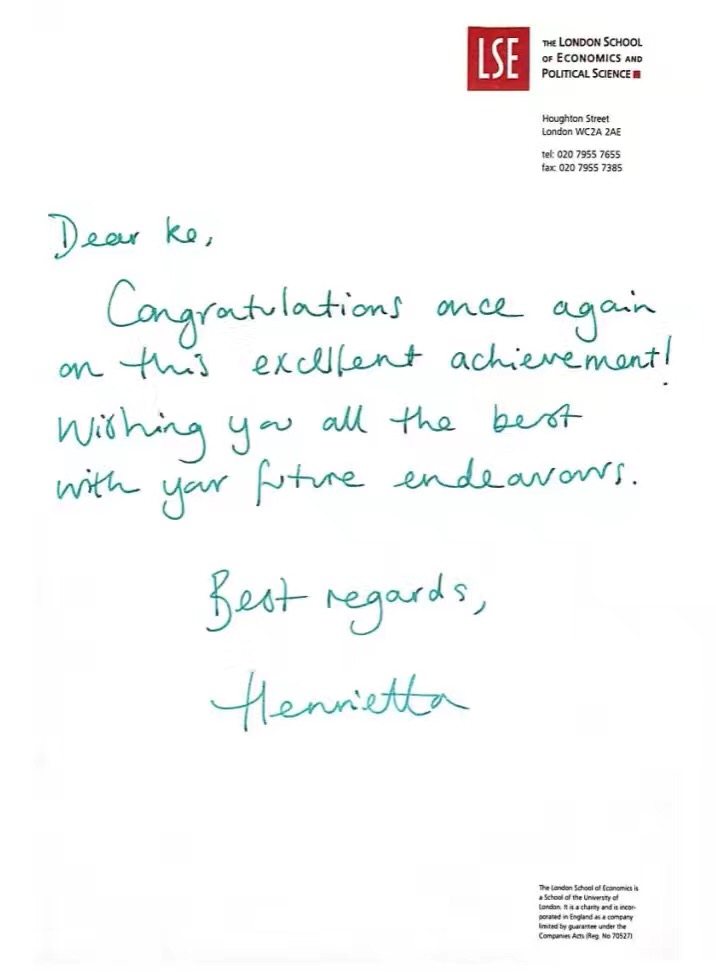 LSE
THE LONDON SCHOOL
OF ECONOMICS AND
POLITICAL SCIENCE
Houghton Street
London WC2A 2AE
tel: 020 7955 7655
fax: 020 7955 7385
Dear Ke,
Congratulations once again
on this excellent achievement!
Wishing you all the best
with your future endeavours.
Best regards,
Henrietta
The London School of Economics is
a School of the University of
London. It is a charity and is incor-
porated in England as a company
limited by guarantee under the
Companies Acts (Reg. No 70527)